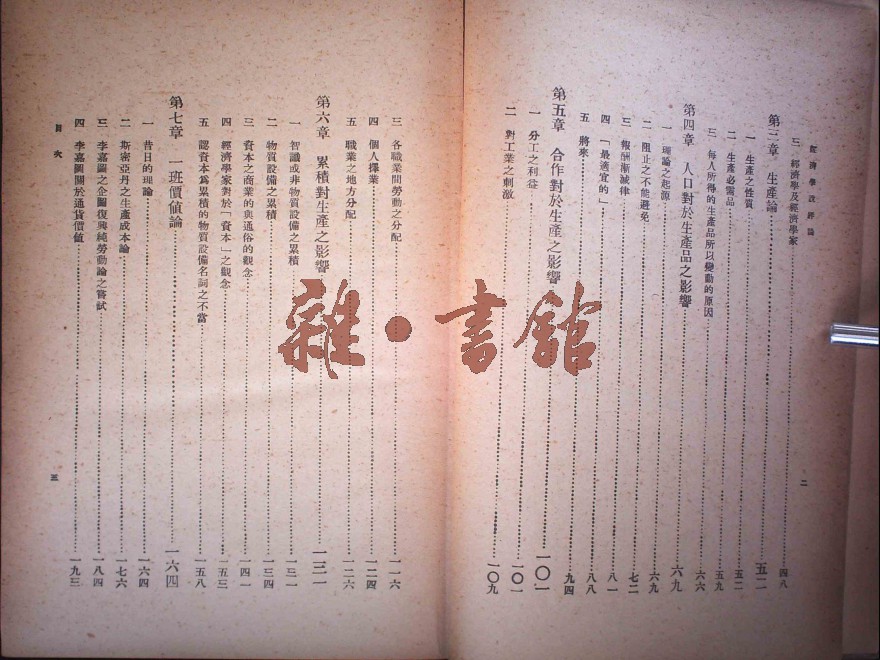 經濟學說評論
二
三 經濟學及經濟學家 四八
第三章 生產論 五二
一 生產之性質 五二
二 生產必需品 五九
三 每人所得的生產品所以變動的原因 六六
第四章 人口對於生產品之影響 六九
一 理論之起源 六九
二 阻止之不能避免 七二
三 報酬漸減律 八一
四 「最適宜的」 八八
五 將來 九四
第五章 合作對於生產之影響 一〇一
一 分工之利益 一〇一
二 對工業之刺激 一〇九
三 各職業間勞動之分配 一一六
四 個人擇業 一二四
五 職業之地方分配 一二六
第六章 累積對生產之影響 一三一
一 智識或非物質設備之累積 一三一
二 物質設備之累積 一三四
三 資本之商業的與通俗的觀念 一四一
四 經濟學家對於「資本」之觀念 一五三
五 認資本為累積的物質設備名詞之不當 一五八
第七章 一班價值論 一六四
一 昔日的理論 一六四
二 斯密亞丹之生產成本論 一七六
三 李嘉圖之企圖復興純勞動論之嘗試 一八四
四 李嘉圖關於通貨價值 一九三
目次
三
雜·書館